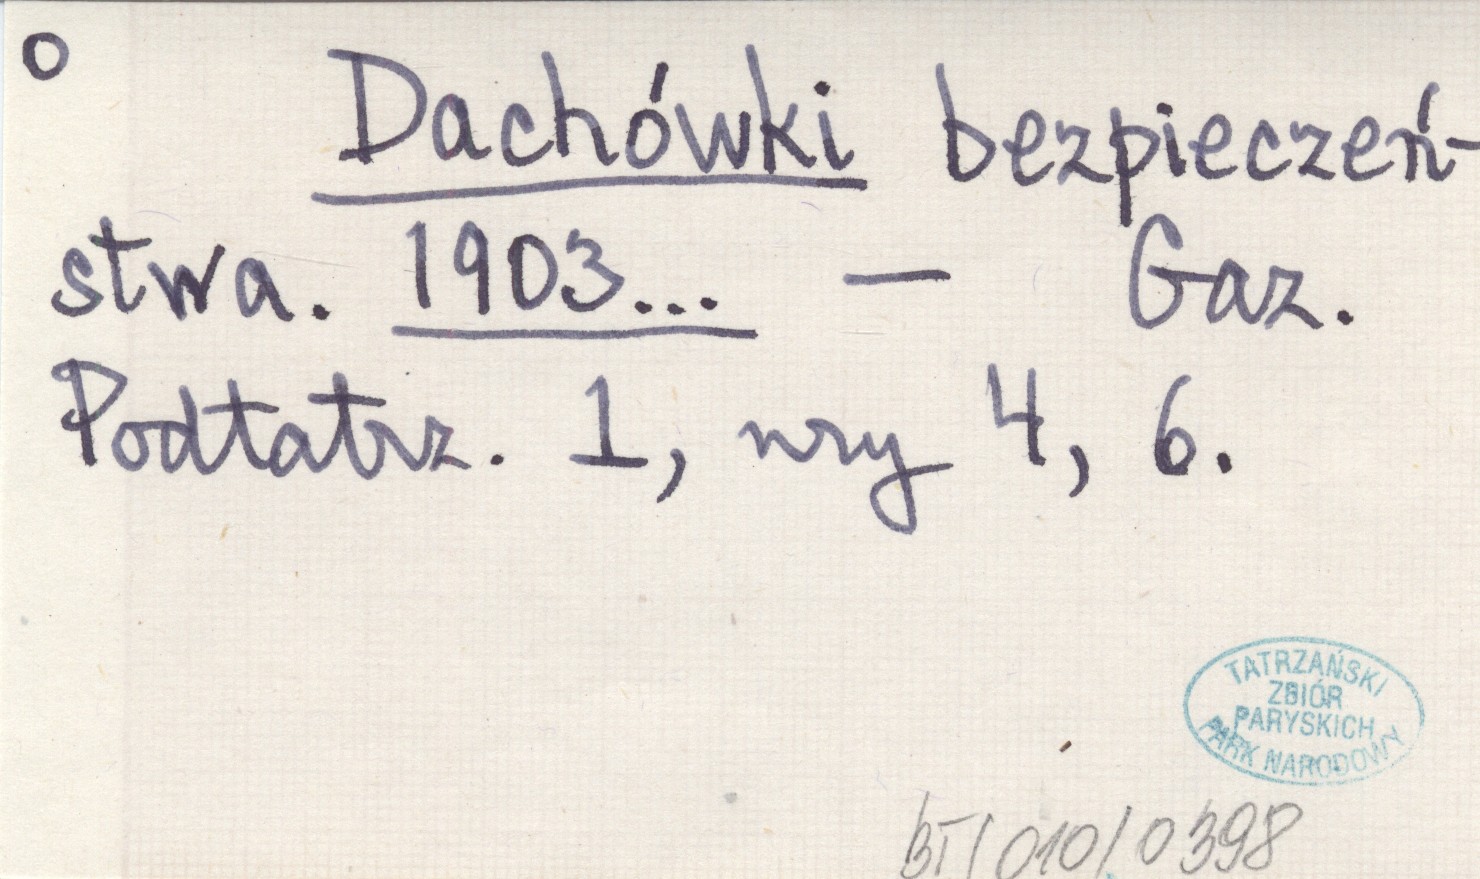 o
Dachówki bezpieczeń-
stwa. 1903... — Gaz.
Podtatrz. 1, nry 4, 6.
TATRZAŃSKI
ZBIÓR
PARYSKICH
PARK NARODOWY
BT/010/0398